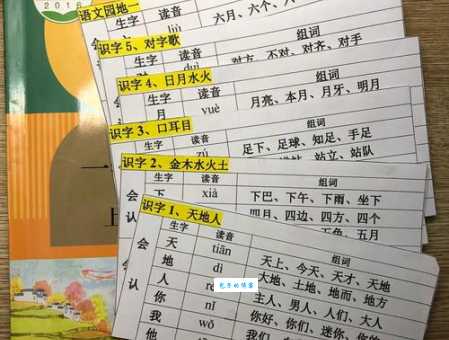 2016
一
上
语文园地一
生字 读音 组词
会 六月、六个、六
识字 5、对字歌
生字 读音 组词
duì 对方、不对、对齐、对手
识字 4、日月水火
生字 读音 组词
月 yuè 月亮、本月、月牙、明月
识字 3、口耳目
生字 读音 组词
zú 足下、足球、知足、手足
站立、站队
识字 2、金木水火土
生字 读音 组词
会 下 xià 下巴、下午、下雨、坐下
四月、四边、四方、四个
五月
识字 1、天地人
生字 读音 组词
会 天 tiān 天上、今天、天才、天地
地 dì 大地、土地、地面、地方
认 人 主人、男人、人们、大人
你 nǐ 你好、你们、迷你、你的
我 wǒ 我们、
他